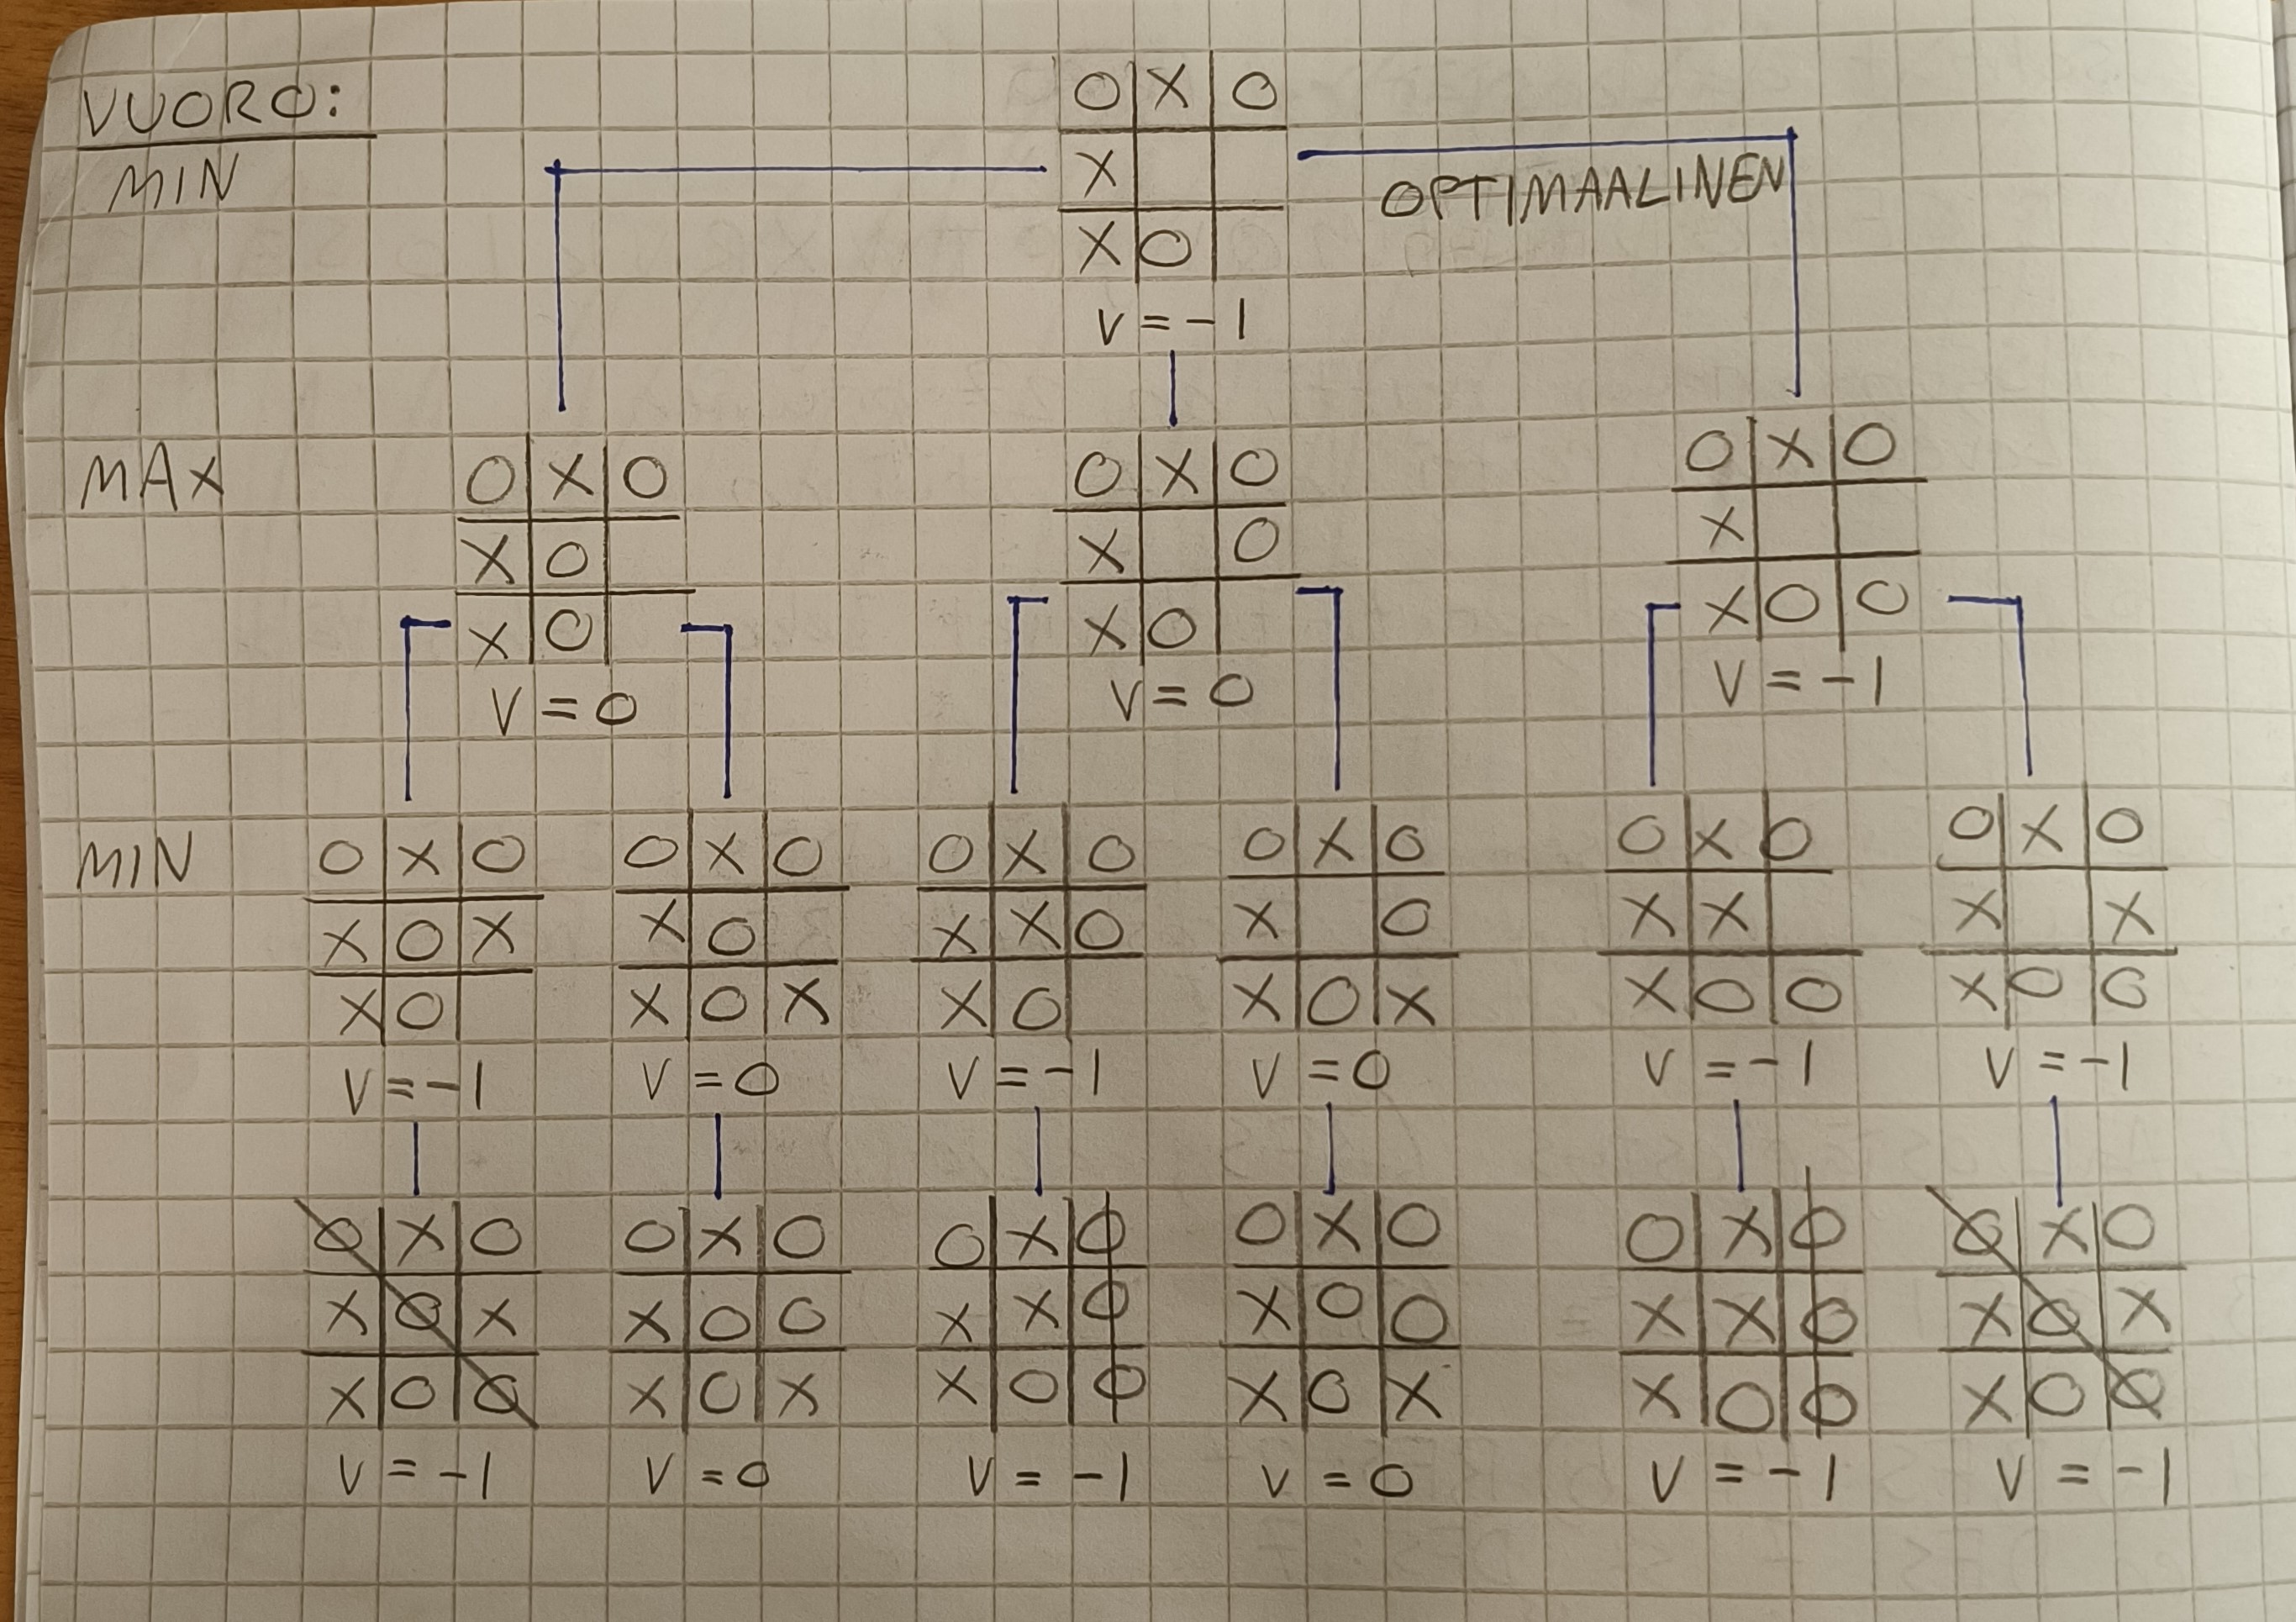 VUORO:
MIN
O X O
X
X O
OPTIMAALINEN
V = -1
MAX
O X O
X O
X O
V = 0
O X O
X O
X O
V = 0
O X O
X
X O O
V = -1
MIN
O X O
X O X
X O
V = -1
O X O
X O
X O X
V = 0
O X O
X X O
X O
V = -1
O X O
X O
X O X
V = 0
O X O
X X
X O O
V = -1
O X O
X X
X O O
V = -1
O X O
X O X
X O O
V = -1
O X O
X O O
X O X
V = 0
O X O
X X O
X O O
V = -1
O X O
X O O
X O X
V = 0
O X O
X X O
X O O
V = -1
O X O
X O X
X O O
V = -1